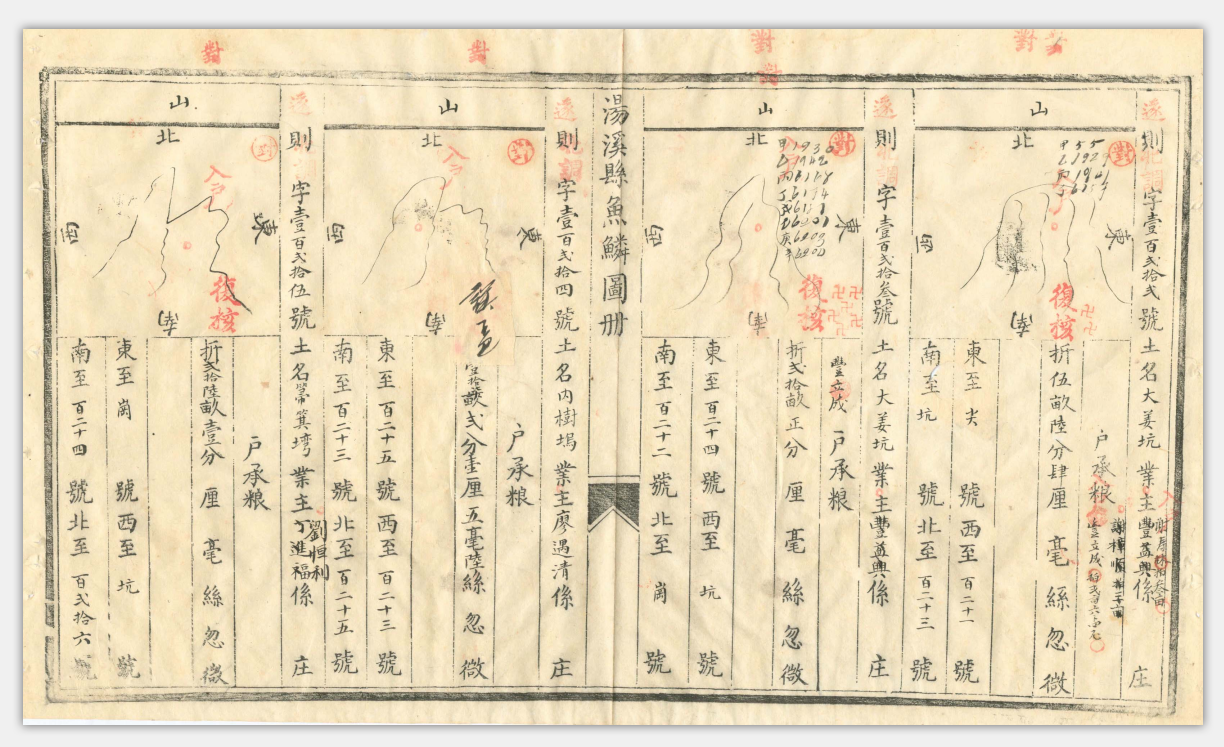 對
對
對
對
對
對
遂
則
字壹百弍拾弍號
土名大姜坑
業主豐益興係
庄
山
北
東
西
南
對
復核
卍卍
戶承粮
謝樟順
豐立成
折伍畝陸分肆厘
毫
絲
忽
微
東至尖
號西至百二十一
號
南至坑
號北至百二十三
號
遂
則
字壹百弍拾叁號
土名大姜坑
業主豐益興係
庄
山
北
東
西
南
對
甲
乙
丙
丁
戊
復核
卍卍卍卍卍
豐立成
戶承粮
折弍拾畝正分
厘
毫
絲
忽
微
東至百二十四
號西至坑
號
南至百二十二
號北至崗
號
湯溪縣魚鱗圖册
遂
則
字壹百弍拾四號
土名內樹塢
業主廖遇清係
庄
山
北
東
西
南
對
戶承粮
弍分壹厘五毫陸絲忽微
東至百二十五
號西至百二十三
號
南至百二十三
號北至百二十五
號
遂
則
字壹百弍拾伍號
土名
箕塆
業主丁進福係
劉惲利
庄
山
北
東
西
南
對
復核
戶承粮
折弍拾陸畝壹分
厘
毫
絲
忽
微
東至崗
號西至坑
號
南至百二十四
號北至百弍拾六
號